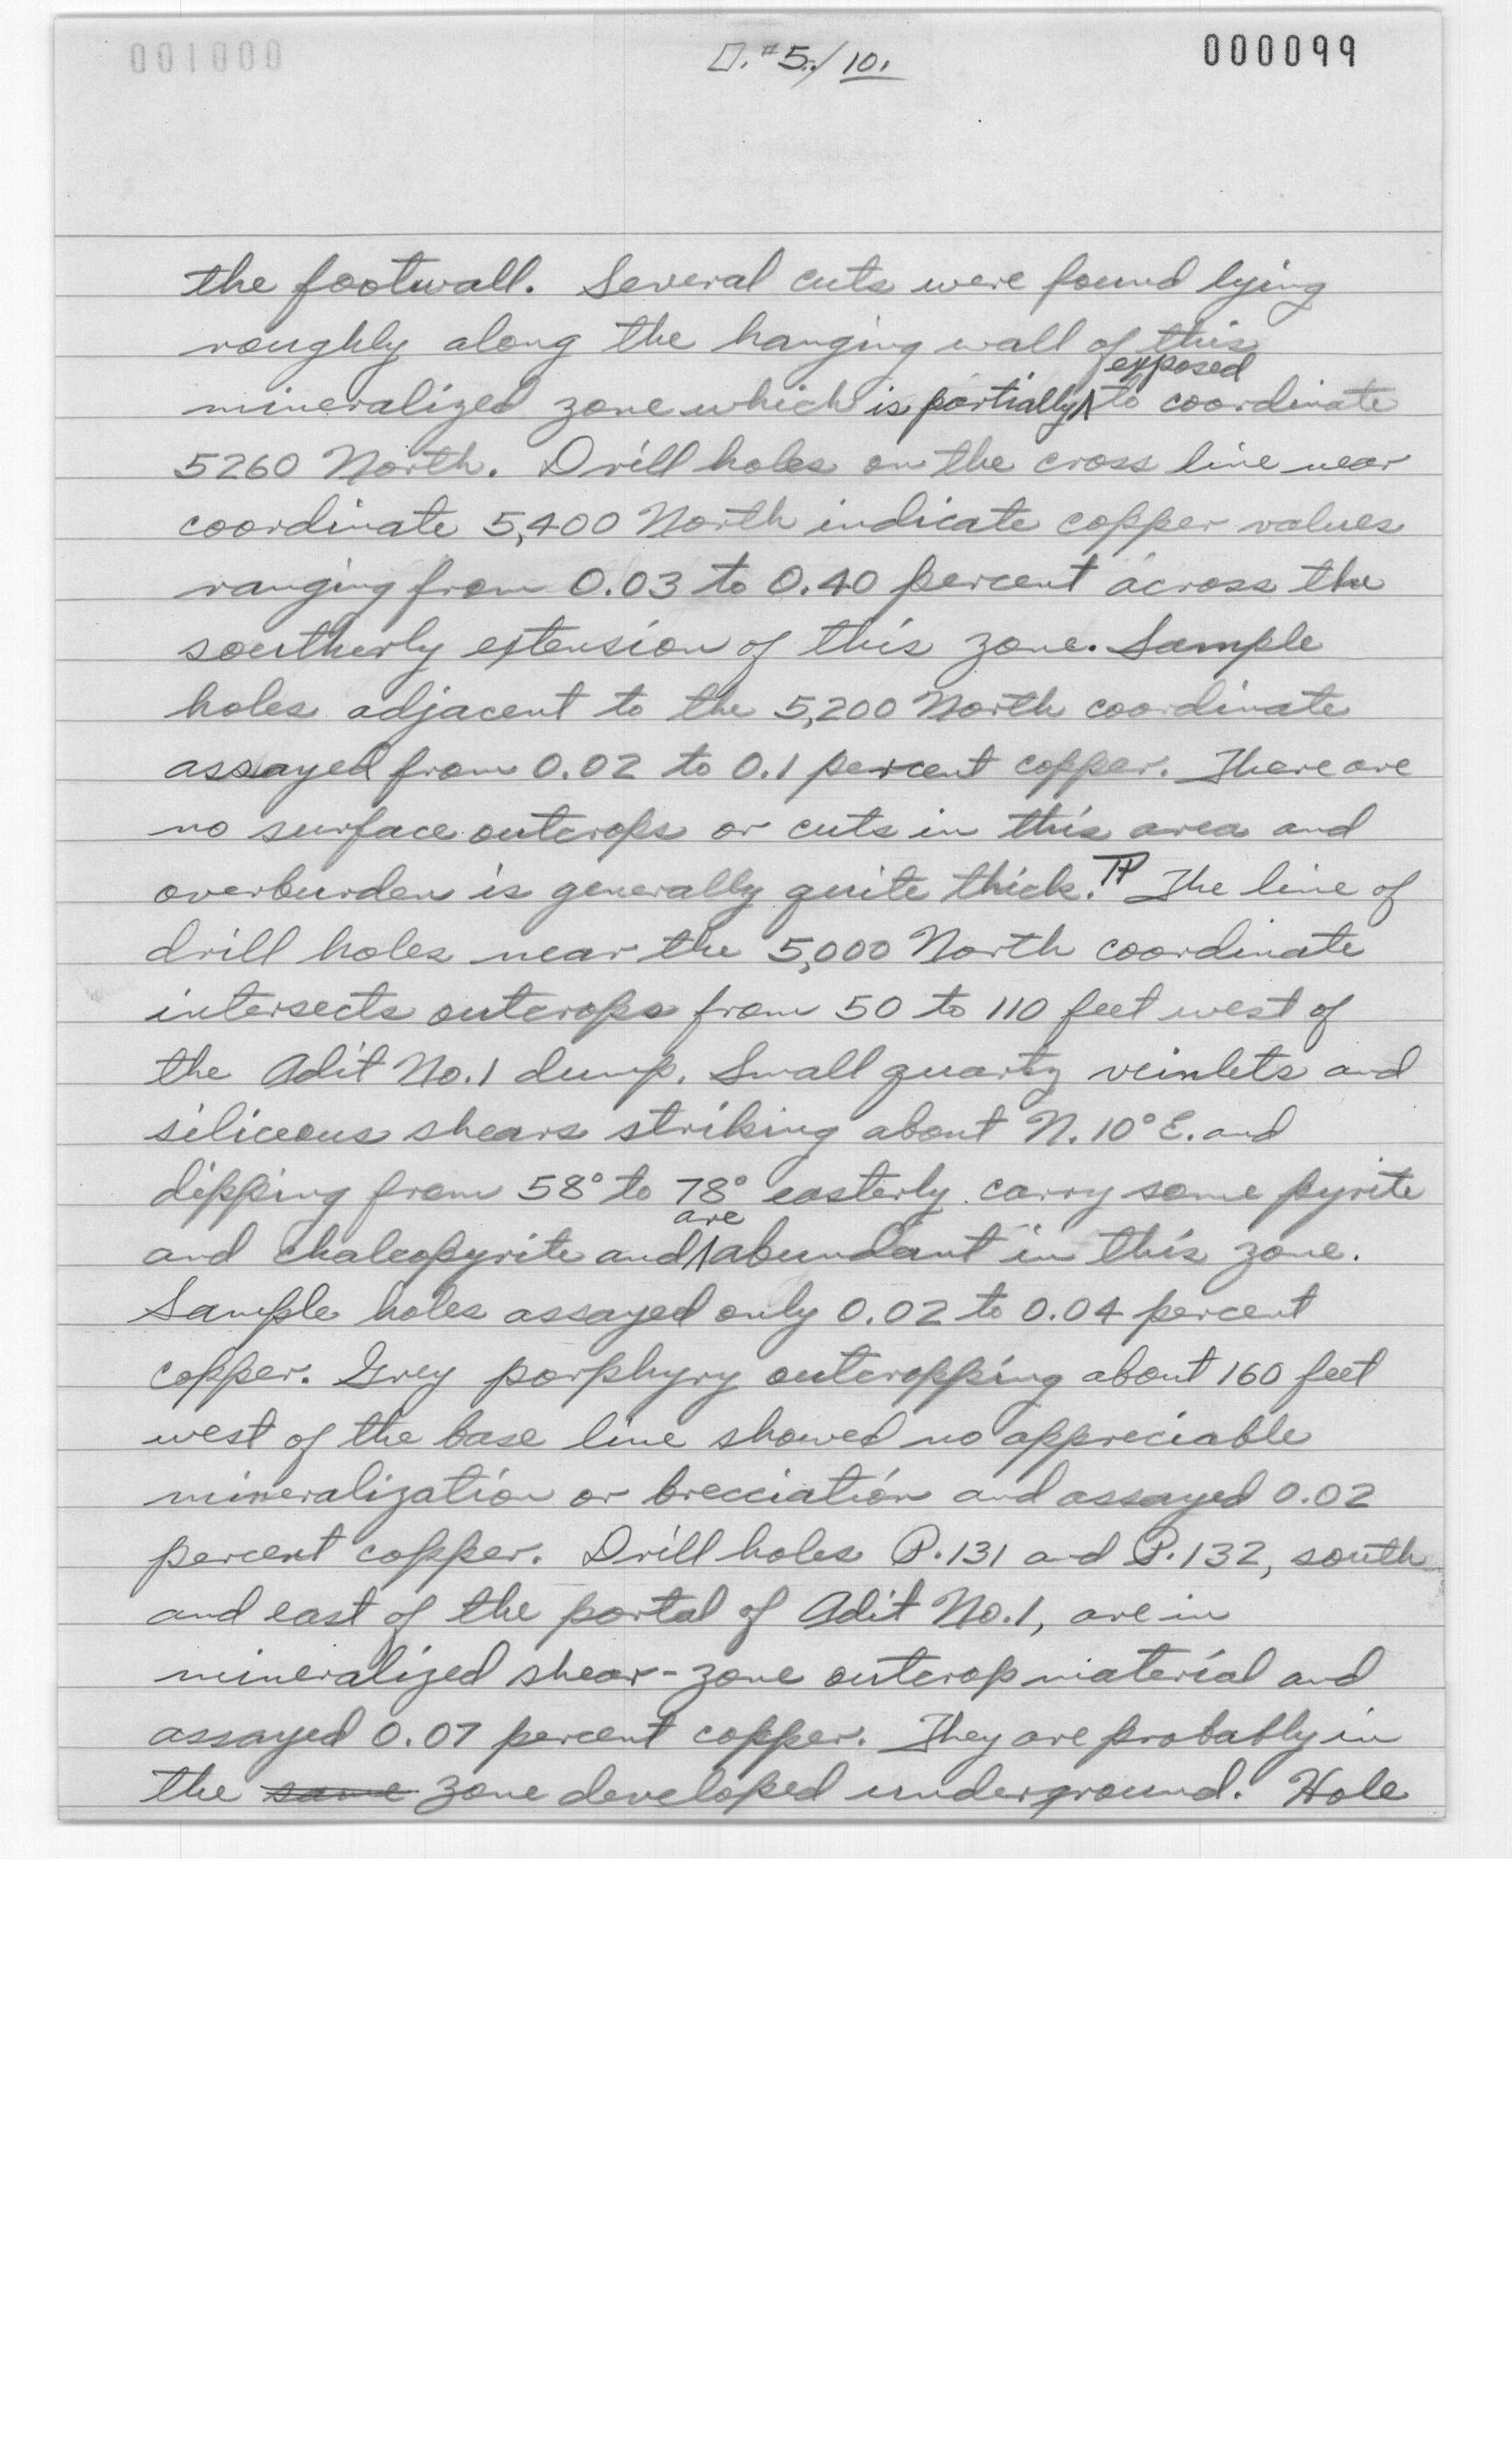 001000
#5./10.
000099
the footwall. Several cuts were found lying
roughly along the hanging wall of this
exposed
mineralized zone which is partially ∧ to coordinate
5260 North. Drill holes on the cross line near
coordinate 5,400 North indicate copper values
ranging from 0.03 to 0.40 percent across the
southerly extension of this zone. Sample
holes adjacent to the 5,200 North coordinate
assayed from 0.02 to 0.1 percent copper. There are
no surface outcrops or cuts in this area and
overburden is generally quite thick. ¶ The line of
drill holes near the 5,000 North coordinate
intersects outcrops from 50 to 110 feet west of
the Adit No. 1 dump. Small quartz veinlets and
siliceous shears striking about N. 10° E. and
dipping from 58° to 78° easterly carry some pyrite
are
and chalcopyrite and ∧ abundant in this zone.
Sample holes assayed only 0.02 to 0.04 percent
copper. Grey porphyry outcropping about 160 feet
west of the base line showed no appreciable
mineralization or brecciation and assayed 0.02
percent copper. Drill holes P.131 and P.132, south
and east of the portal of Adit No. 1, are in
mineralized shear-zone outcrop material and
assayed 0.07 percent copper. They are probably in
the same zone developed underground. Hole